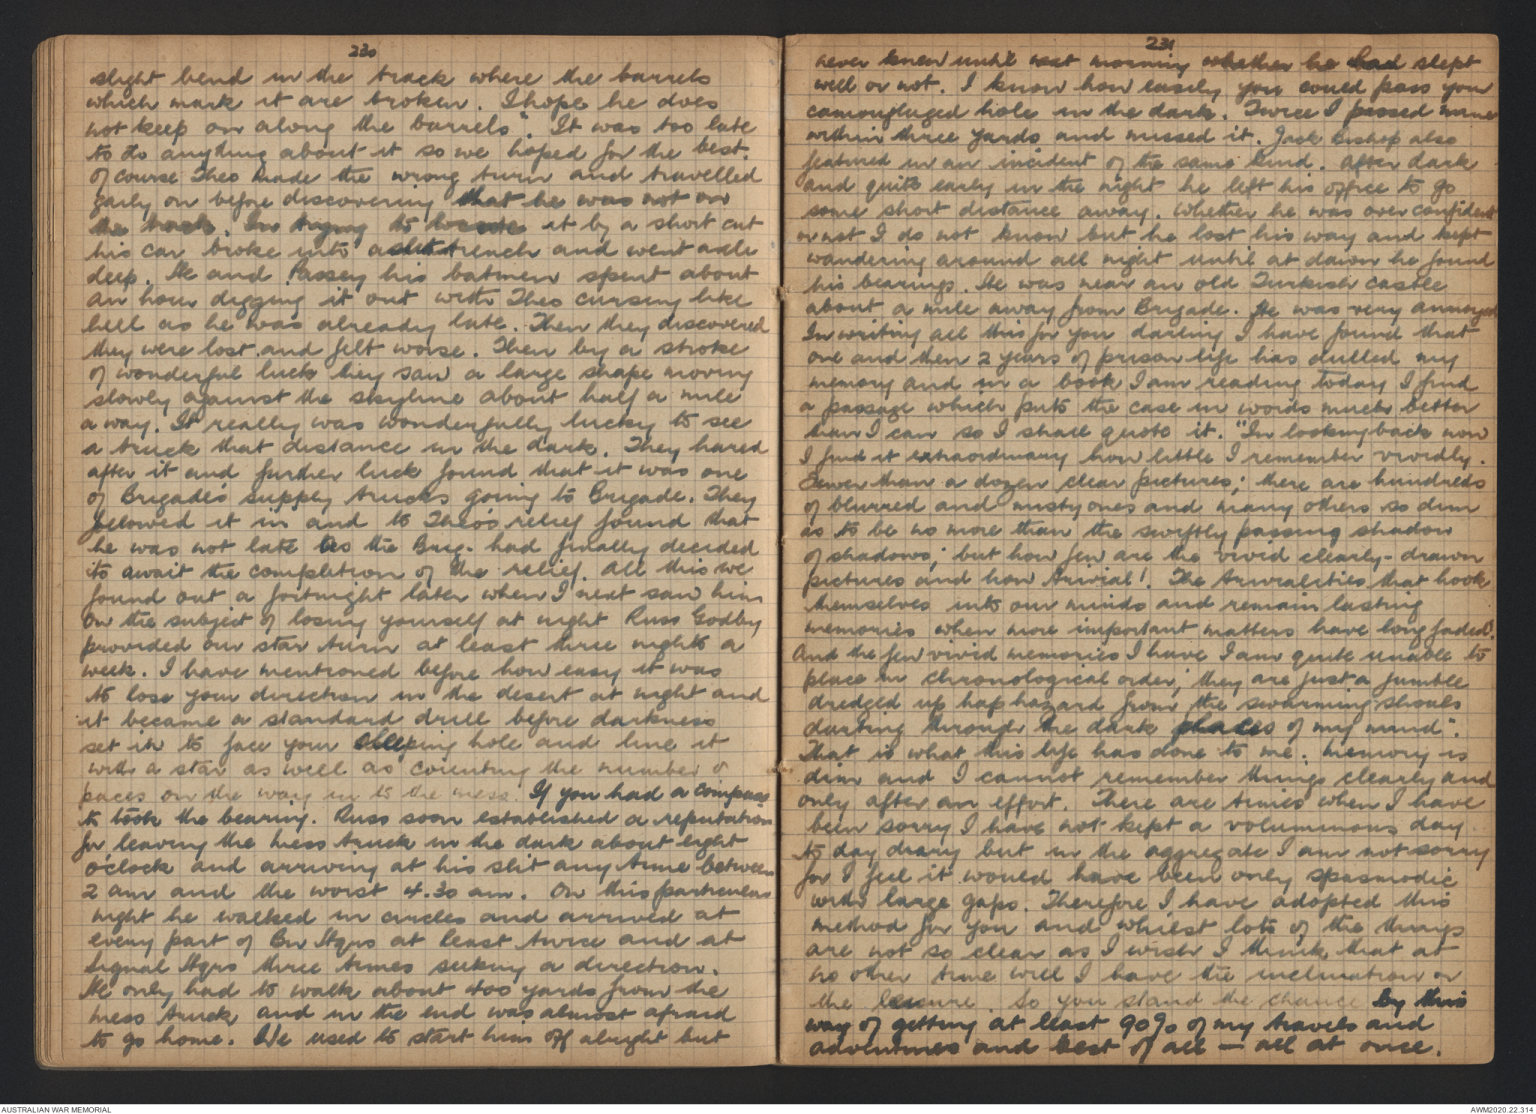 230
slight bend in the track where the barrels
which mark it are broken. I hope he does
not keep on along the barrels". It was too late
to do anything about it so we hoped for the best.
Of course Theo made the wrong turn and travelled
early on before discovering that he was not on
the track. In trying to locate it by a short cut
his car broke into a slit trench and went axle
deep. He and Passey his batmen spent about
an hour digging it out with Theo cursing like
hell as he was already late. Then they discovered
they were lost and felt worse. Then by a stroke
of wonderful luck they saw a large shape moving
slowly against the skyline about half a mile
away. It really was wonderfully lucky to see
a truck that distance in the dark. They hared
after it and further luck found that it was one
of Brigade's supply trucks going to Brigade. They
folowed it in and to Theo's relief found that
he was not late as the Brig. had finally decided
to await the completion of the relief. All this we
found out a fortnight later when I next saw him
On the subject of losing yourself at night Russ Godby
provided our star turn at least three nights a
week. I have mentioned before how easy it was
to lose your direction in the desert at night and
it became a standard drill before darkness
set in to face your sleeping hole and line it
with a star as well as counting the number of
paces on the way in to the mess. If you had a compass
to took the bearing. Russ soon established a reputation
for leaving the mess truck in the dark about eight
o'clock and arriving at his slit any time between
2 am and the worst 4.30 am. On this particular
night he walked in circles and arrived at
every part of Bn Hqrs at least twice and at
Signal Hqrs three times seeking a direction.
He only had to walk about 400 yards from the
mess truck and in the end was almost afraid
to go home. We used to start him off alright but
231
never knew until next morning whether he had slept
well or not. I know how easily you could pass your
camouflaged hole in the dark. Twice I passed mine
within three yards and missed it. Jack Bishop also
featured in an incident of the same kind. After dark
and quite early in the night he left his office to go
some short distance away. Whether he was over confident
or not I do not know but he lost his way and kept
wandering around all night until at dawn he found
his bearings. He was near an old Turkish castle
about a mile away from Brigade. He was very annoyed
In writing all this for you darling I have found that
one and then 2 years of prison life has dulled my
memory and in a book I am reading today I find
a passage which puts the case in words much better
than I can so I shall quote it. "In looking back now
I find it extraordinary how little I remember vividly.
Fewer than a dozen clear pictures; there are hundreds
of blurred and misty ones and many others so dim
as to be no more than the swiftly passing shadow
of shadows; but how few are the vivid clearly-drawn
pictures and how trivial!. The trivialities that hook
themselves into our minds and remain lasting
memories when more important matters have long faded!.
And the few vivid memories I have I am quite unable to
place in chronological order; they are just a jumble
dredged up haphazard from the swarming shoals
darting through the dark places of my mind".
That is what this life has done to me. memory is
dim and I cannot remember things clearly and
only after an effort. There are times when I have
been sorry I have not kept a voluminous day
to day diary but in the aggregate I am not sorry
for I feel it would have been only spasmodic
with large gaps. Therefore I have adopted this
method for you and whilst lots of the things
are not so clear as I wish I think that at
no other time will I have the inclination or
the leisure. So you stand the chance by this
way of getting at least 90% of my travels and
adventures and best of all — all at once.
AUSTRALIAN WAR MEMORIAL
AWM2020.22.314